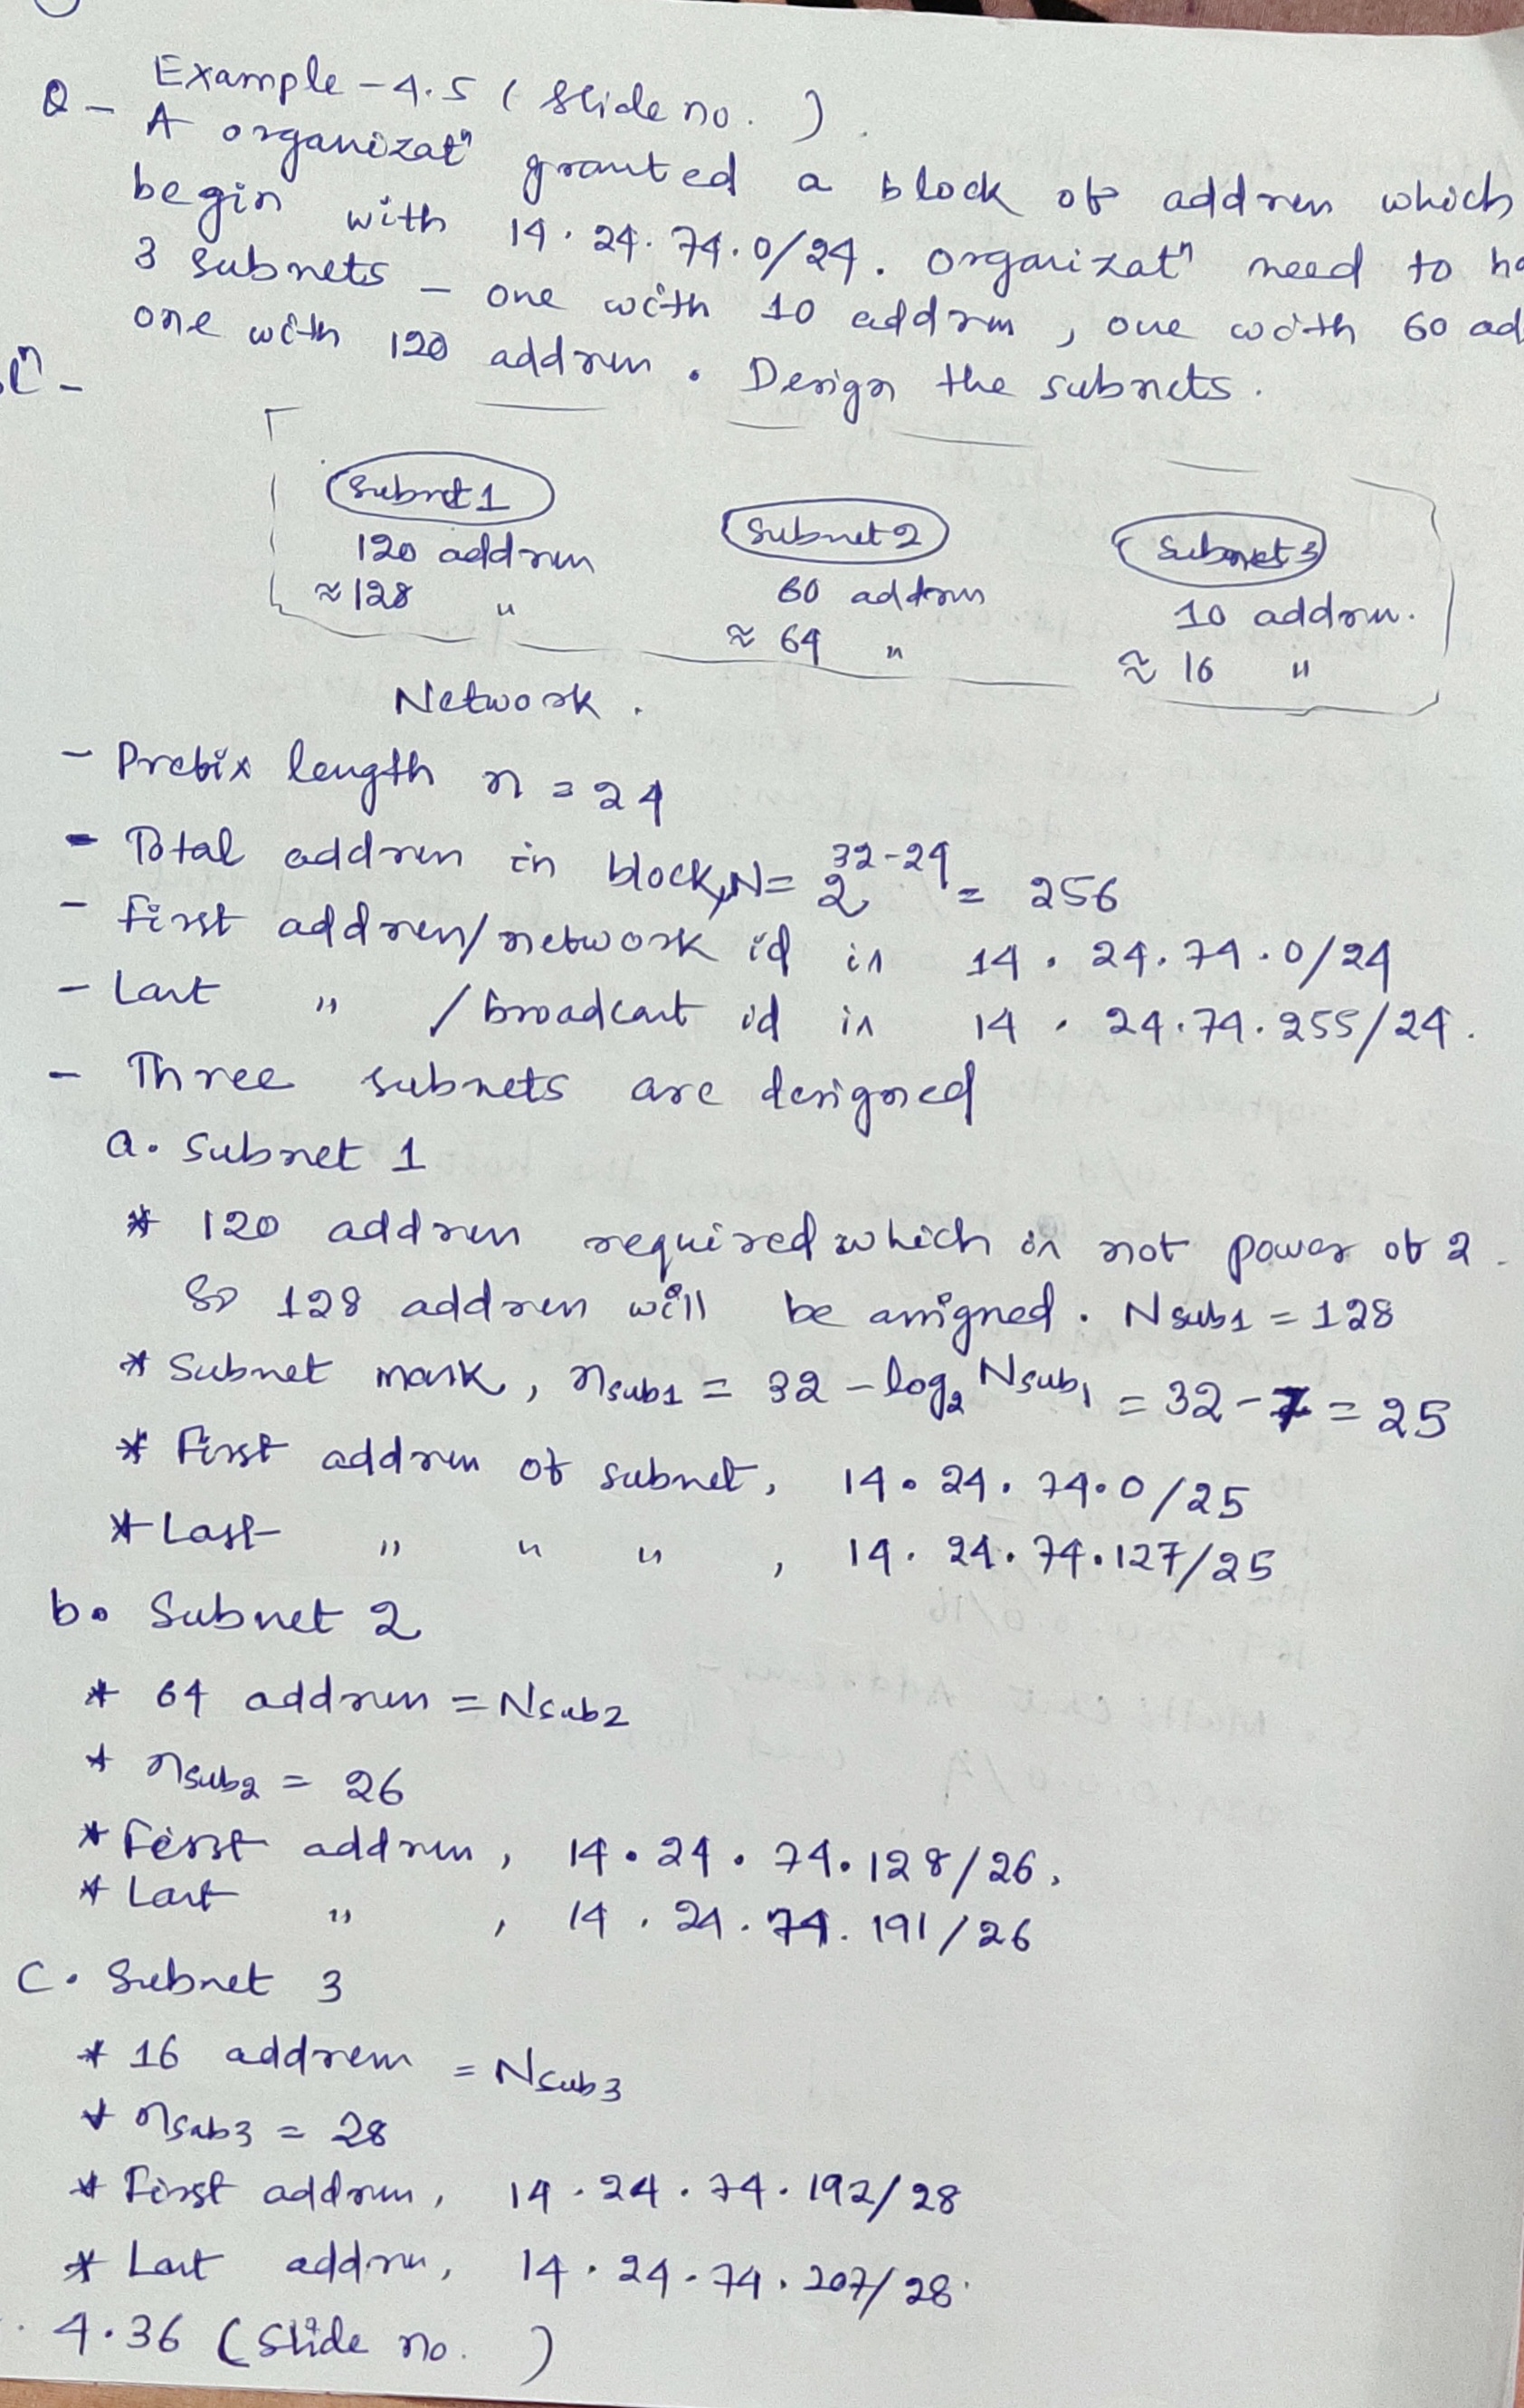 Example - 4.5 ( Slide no. ).
Q - A organizatⁿ granted a block of address which
begin with 14.24.74.0/24. Organizatⁿ need to
3 subnets - one with 10 address, one with 60
one with 120 address. Design the subnets.
Subnet 1 Subnet 2 Subnet 3
120 address 60 address 10 address.
≈ 128 " ≈ 64 " ≈ 16 "
Network.
- Prefix length n = 24
- Total address in block, N = 2^(32-24) = 256
- First address/network id is 14.24.74.0/24
- Last " / broadcast id is 14.24.74.255/24.
- Three subnets are designed
a. Subnet 1
* 120 address required which is not power of 2.
So 128 address will be assigned. Nsub1 = 128
* Subnet mask, nsub1 = 32 - log₂ Nsub1 = 32 - 7 = 25
* First address of subnet, 14.24.74.0/25
* Last " " " , 14.24.74.127/25
b. Subnet 2
* 64 address = Nsub2
* nsub2 = 26
* First address, 14.24.74.128/26.
* Last " , 14.24.74.191/26
C. Subnet 3
* 16 address = Nsub3
* nsub3 = 28
* First address, 14.24.74.192/28
* Last address, 14.24.74.207/28.
4.36 (Slide no. )